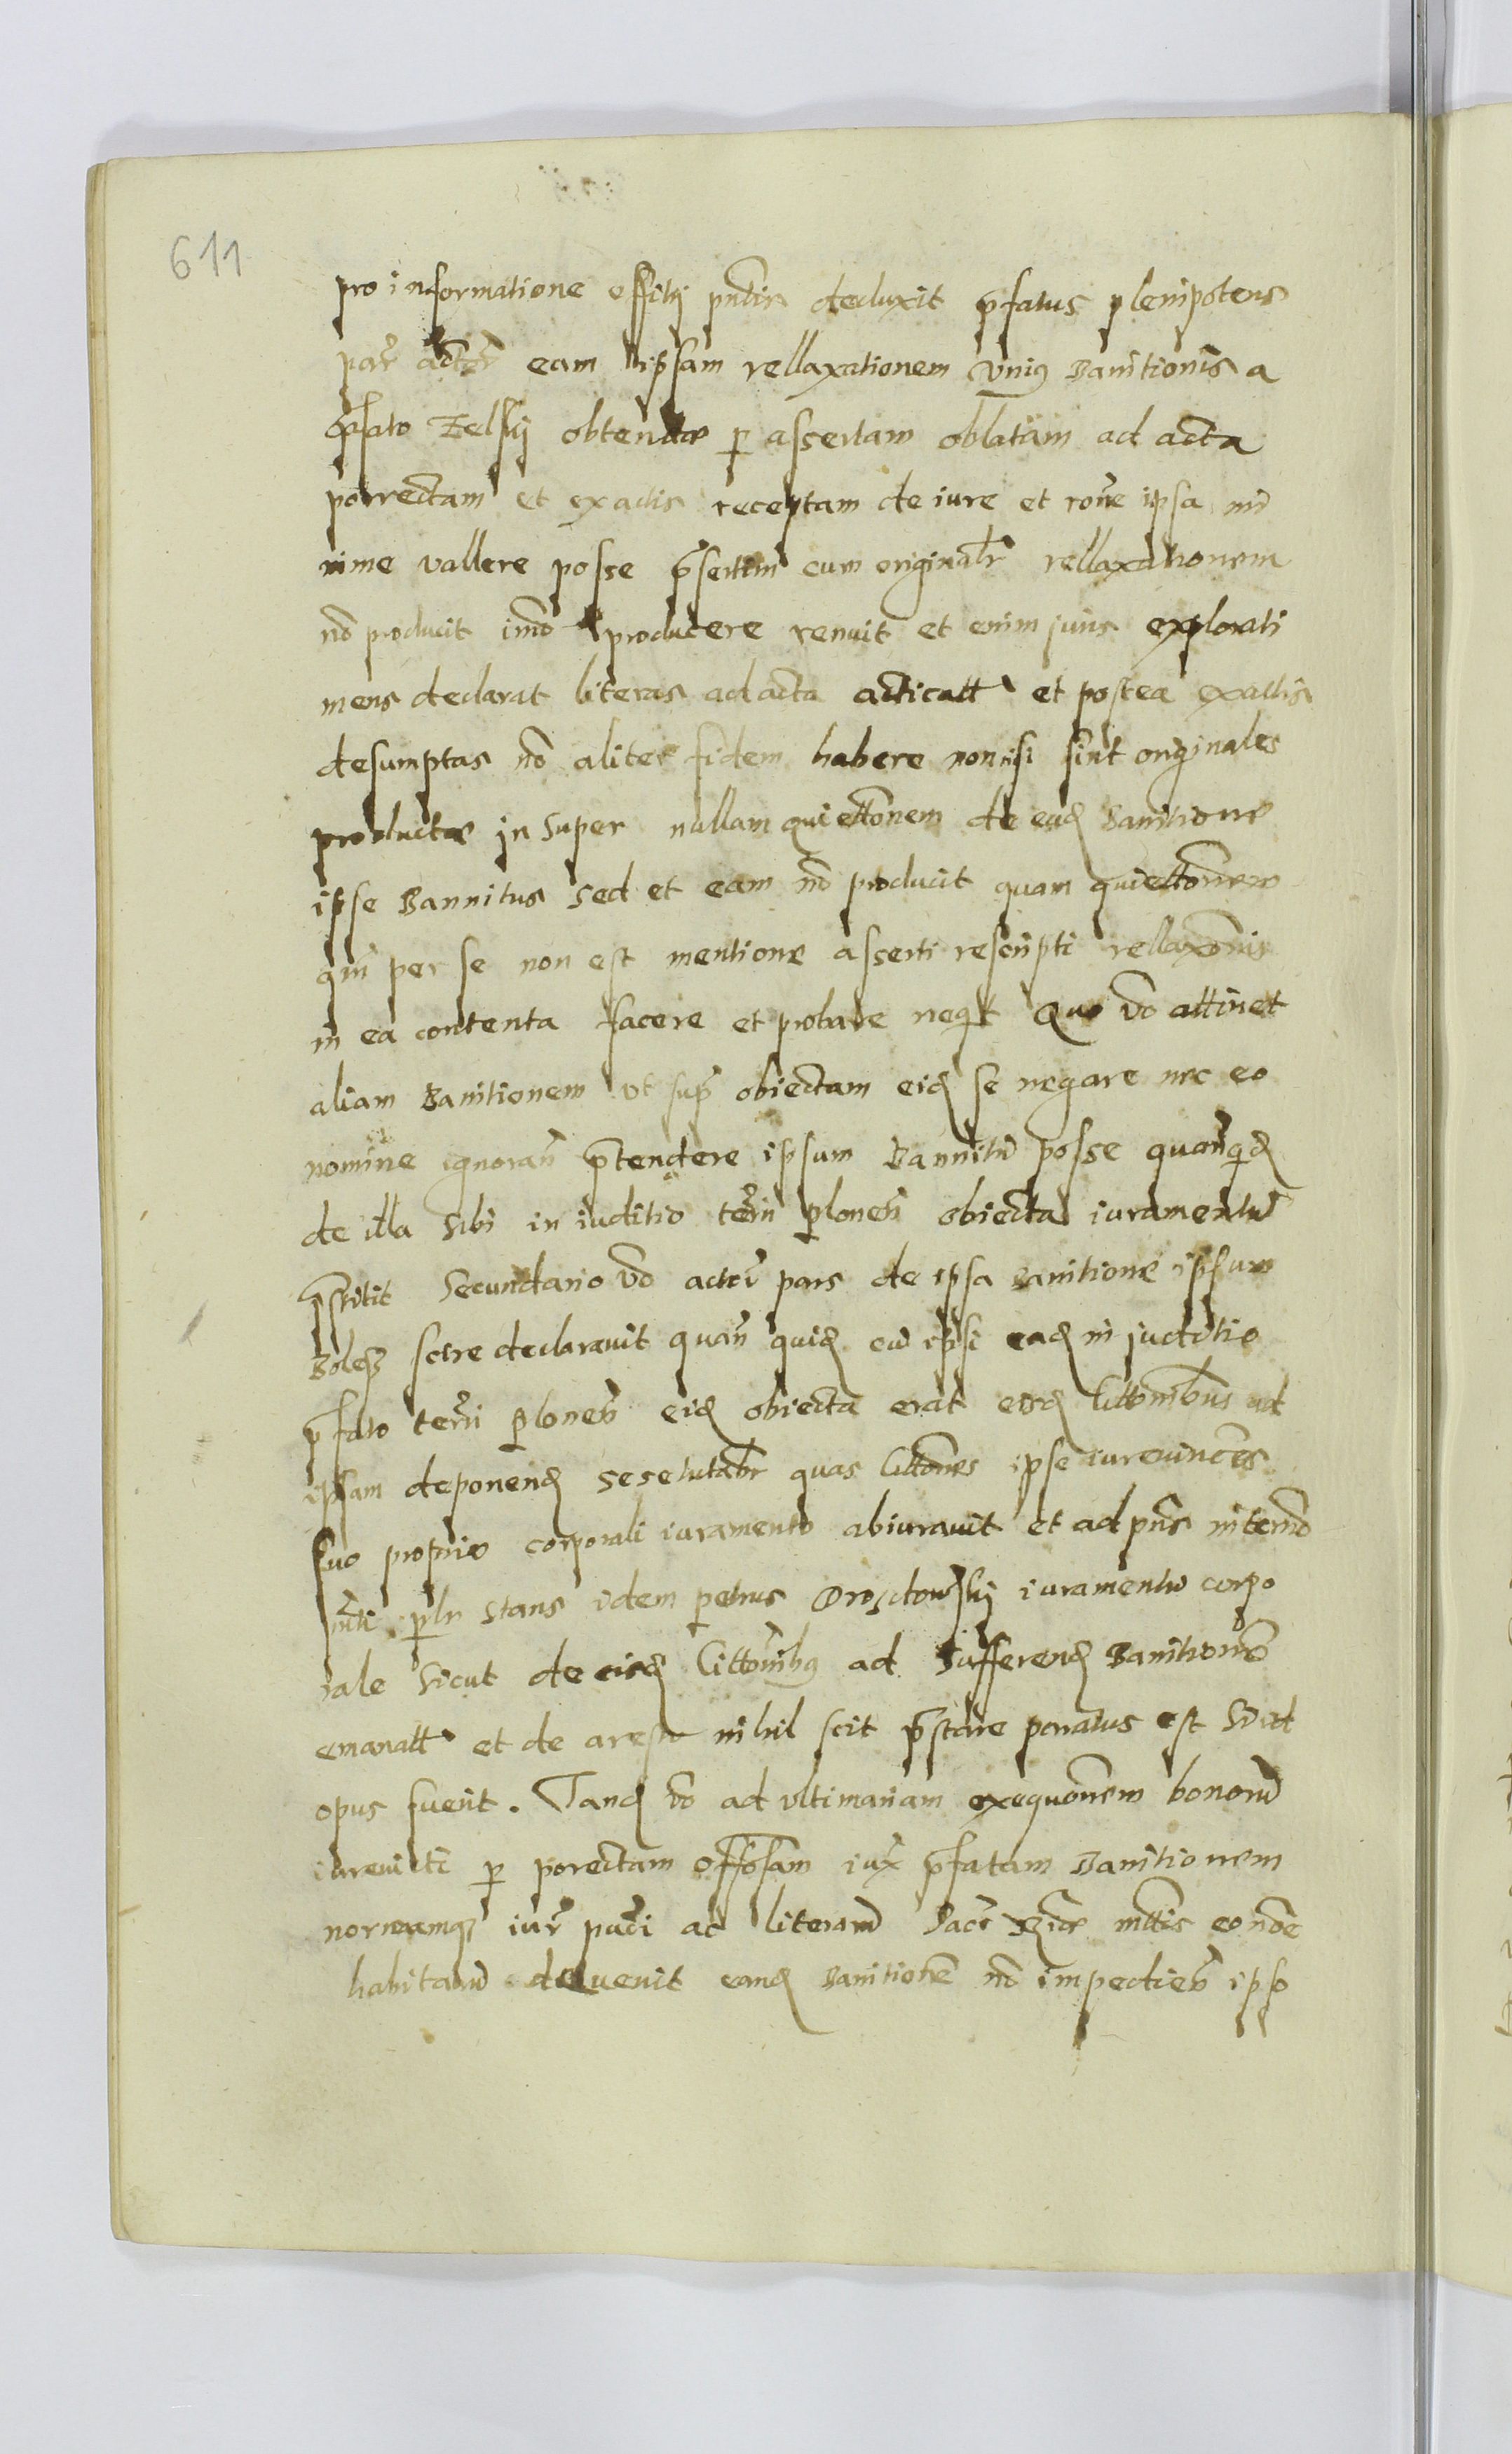 611
pro informatione offitij pntis deduxit pfatus plenipotens
par actor eam ipsam rellaxationem unig Banitionis a
pfato Zelskij obtenta p assertam oblatam ad acta
porrectam et exactis receptam de iure et rone ipsa mi
nime vallere posse psertim cum originalr rellaxationem
no producit imo producere renuit et enim juris explorati
mens declarat literas ad acta acticatt et postea exactis
desumptas no aliter fidem habere nonnisi sint originales
productae in super nullam quiettonem de ead Banitione
ipse Bannitus sed et eam no producit quam quiettonem
qui per se non est mentione asserti rescripti rellaxonis
in ea contenta facere et probare neqt Quo vo attinet
aliam Banitionem ut sup obiectam eid se negare nec eo
nomine ignoran ptendere ipsum Bannitu posse quanqd
de illa sibi in iuditio terri plonen obiecta iuramentu
pstitit Secundario vo actor pars de ipsa Banitione ipsum
scire declaravit quan quid cu ipsi ead in juditio
pfato terri plonen eid obiecta erat eisd littonibus ad
ipsam deponend sese tutabr quas littones ipse iurevincens
suo proprio corporali iuramento abiuravit et ad pns in termo
plr stans idem petrus Drozdowskij iuramentu corpo
rale sicut de eisd littonibg ad sufferend Banitione
emanatt et de aresto nihil scit pstare paratus est Si id
opus fuerit. Tand vo ad ultimariam exequonem bonoru
iurevicti p porectam offosam iux pfatam Banitionem
normamqz iur puci ac literaru Sacr mttis eo noe
habitaru devenit eand Banitione no impedien ipso